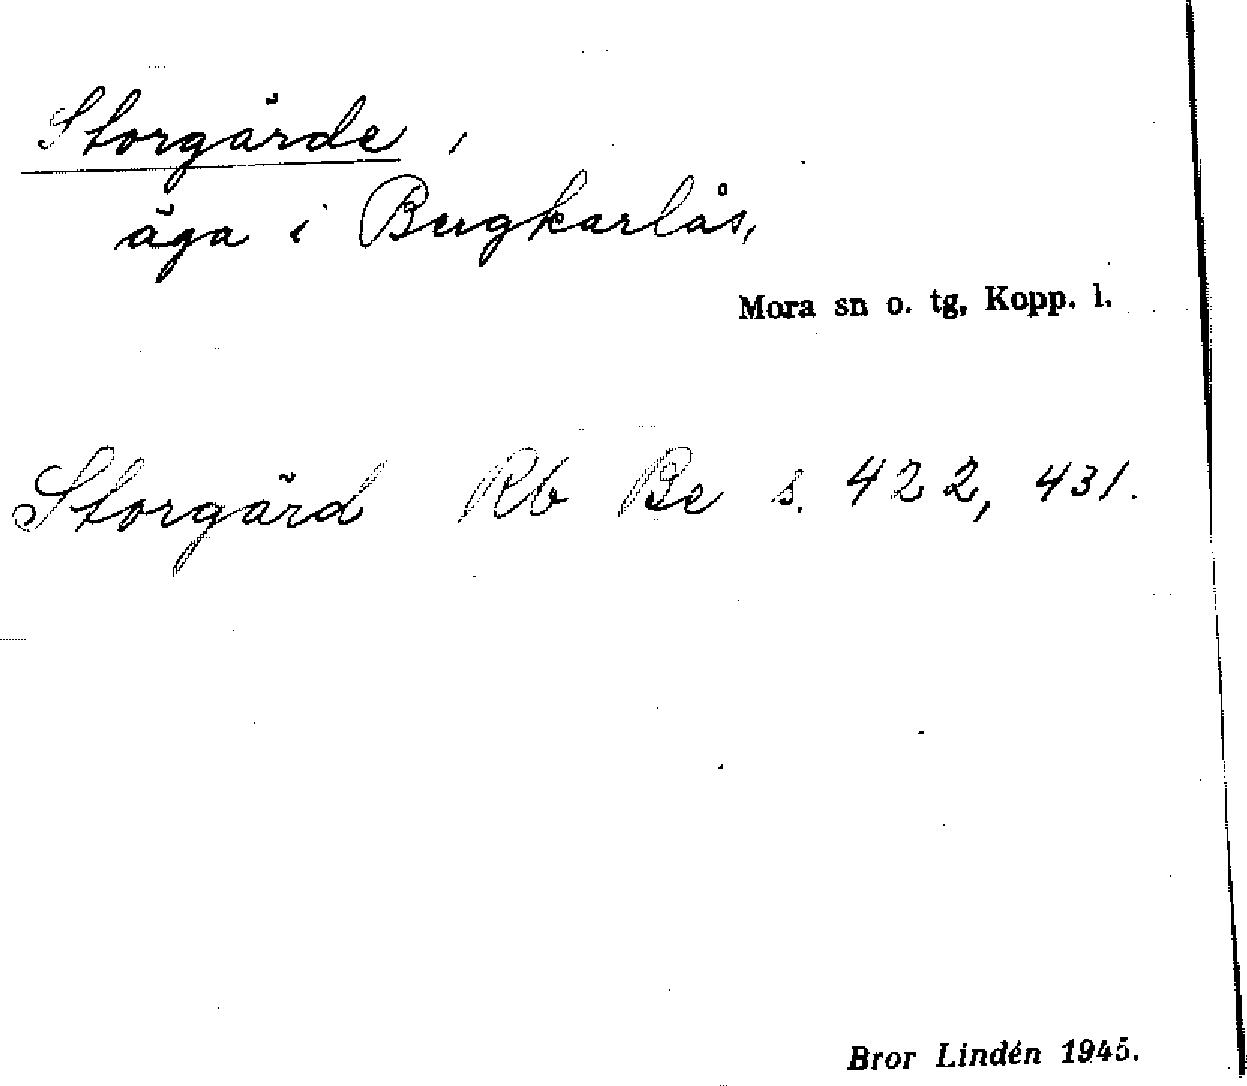 Storgärde,
äga i Bergkarlås,
Mora sn o. tg, Kopp. l.
Storgärd Rb Be s. 422, 431.
Bror Lindén 1945.